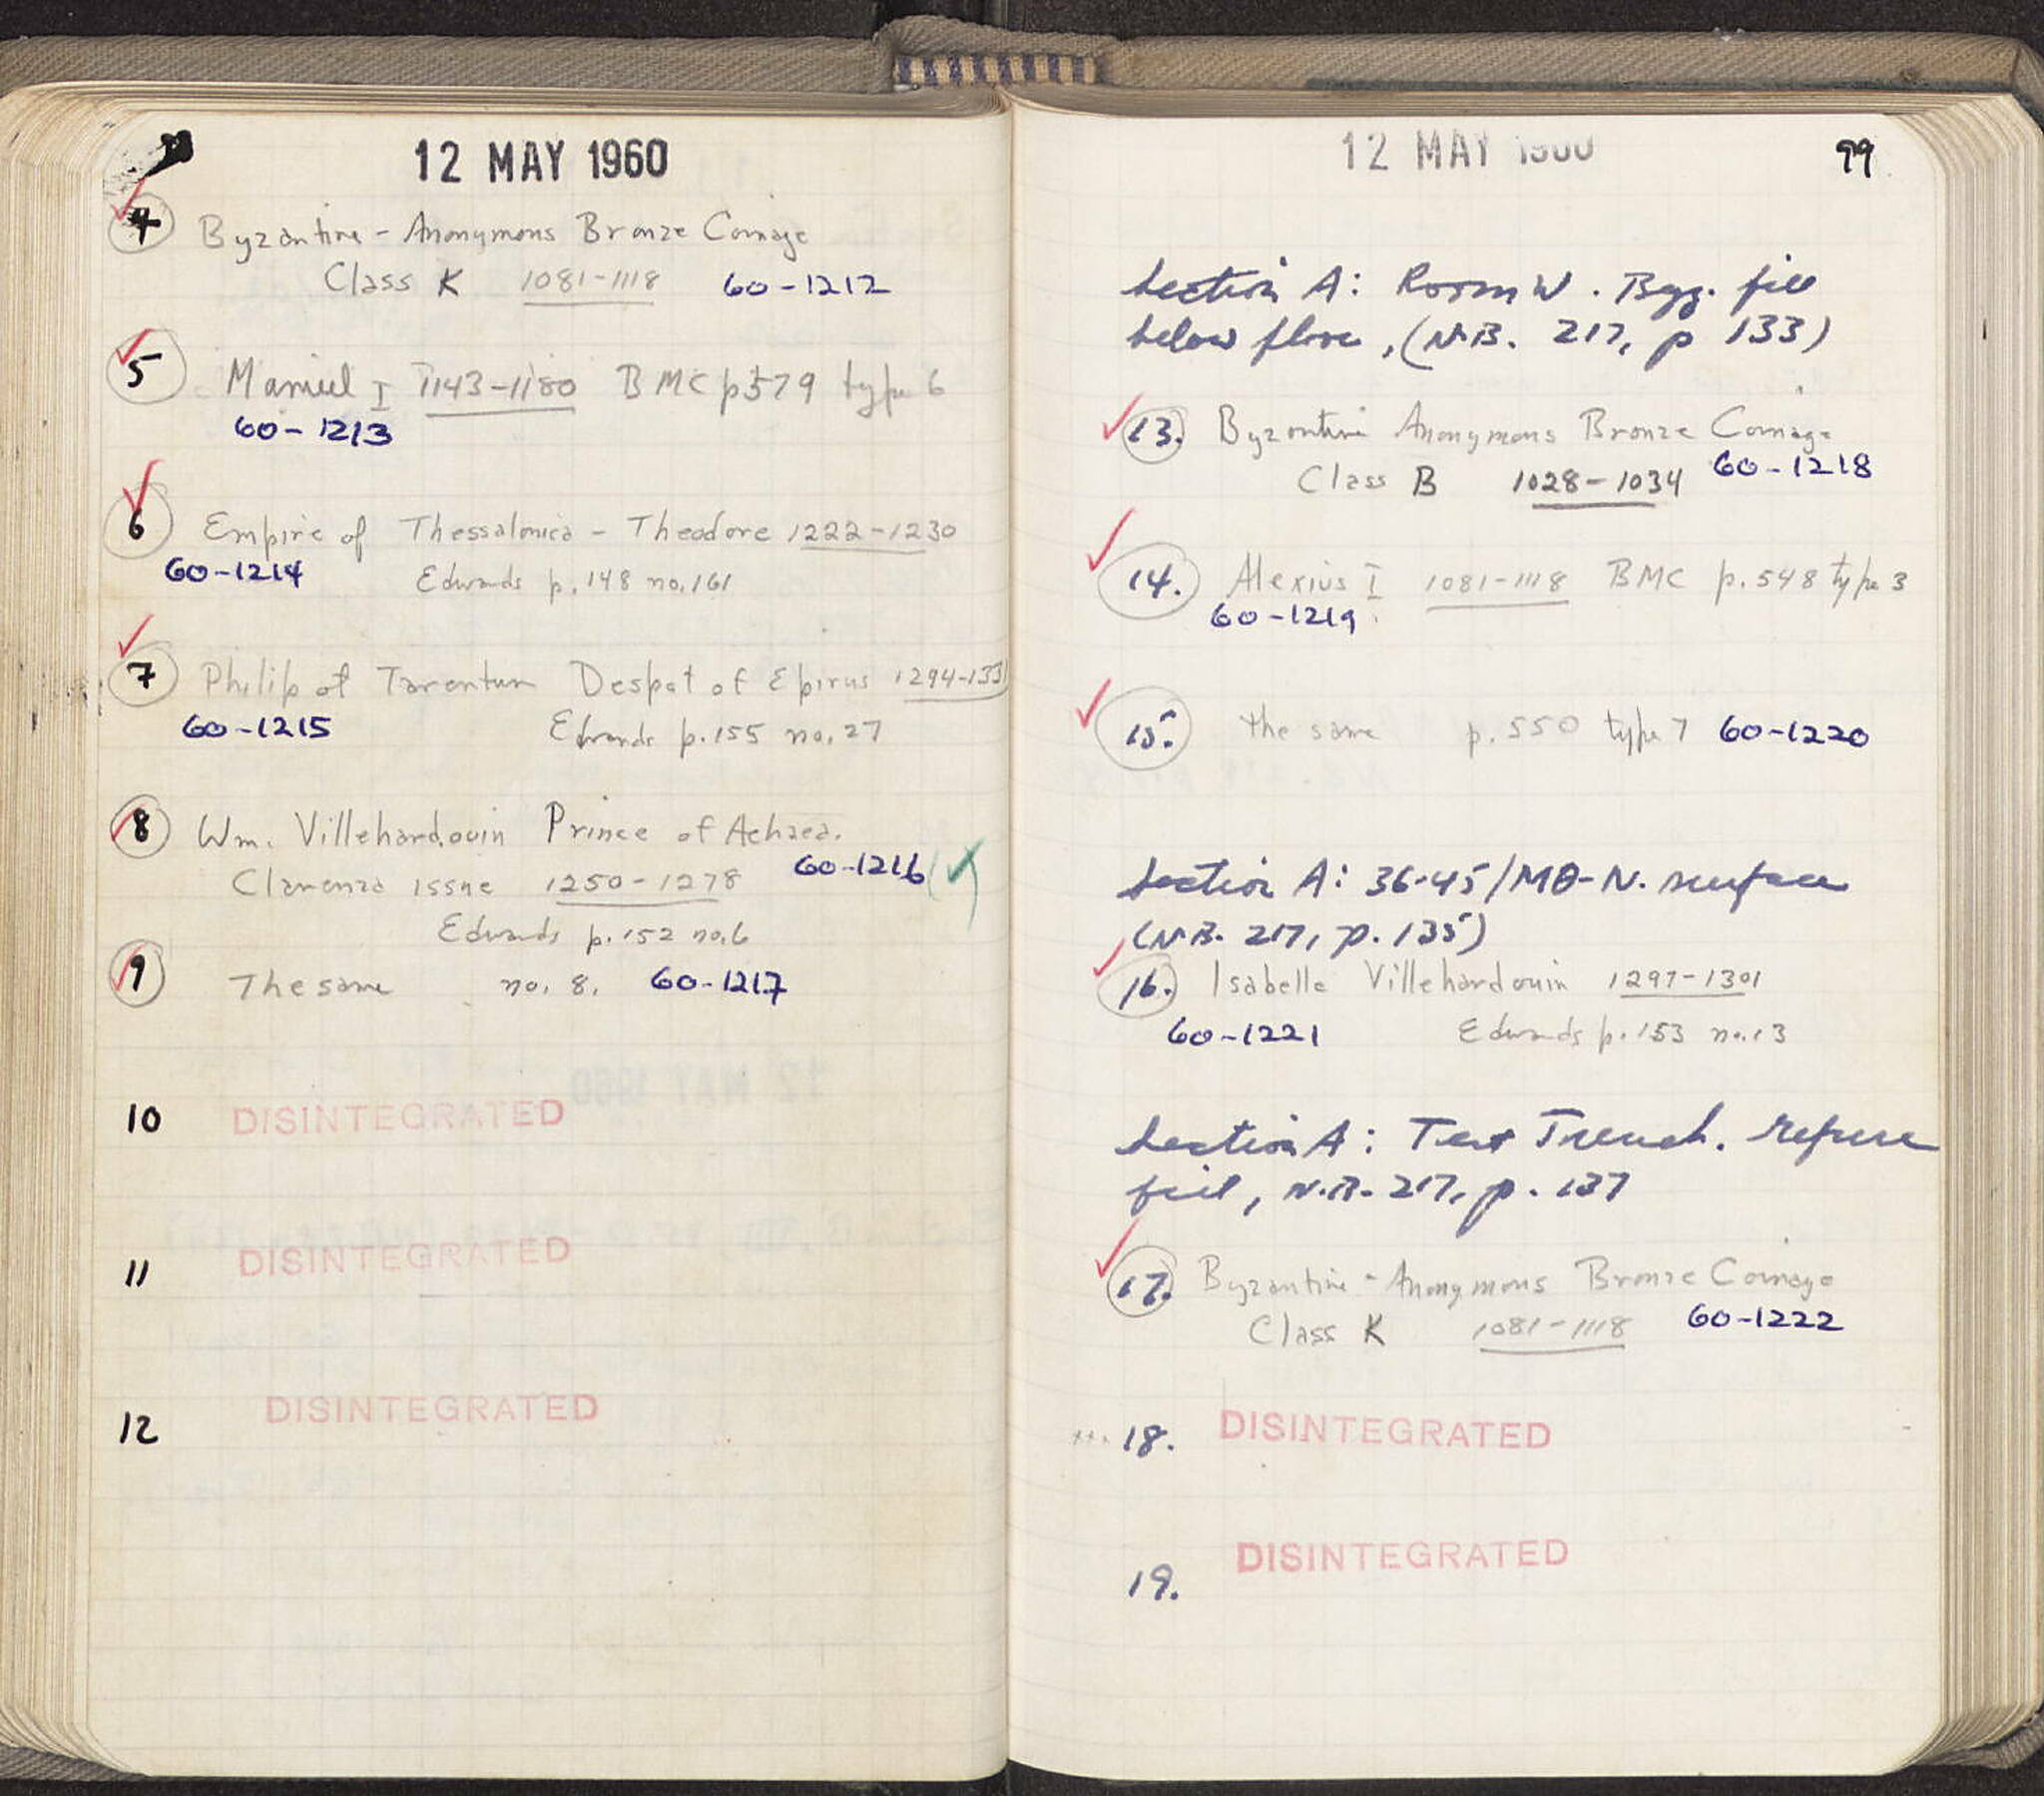 12 MAY 1960
4 Byzantine - Anonymous Bronze Coinage
Class K 1081-1118 60-1212
5 Manuel I 1143-1180 BMC p579 type 6
60-1213
6 Empire of Thessalonica - Theodore 1222-1230
60-1214 Edwards p. 148 no. 161
7 Philip of Tarentum Despot of Epirus 1294-1331
60-1215 Edwards p. 155 no. 27
8 Wm. Villehardouin Prince of Achaea.
Clarenza issue 1250-1278 60-1216
Edwards p. 152 no. 6
9 The same no. 8. 60-1217
10 DISINTEGRATED
11 DISINTEGRATED
12 DISINTEGRATED
12 MAY 1960 99
Section A: Room W. Byz. fill
below floor, (N.B. 217, p 133)
13. Byzantine Anonymous Bronze Coinage
Class B 1028-1034 60-1218
14. Alexius I 1081-1118 BMC p. 548 type 3
60-1219
15. the same p. 550 type 7 60-1220
Section A: 36-45/MΘ-N. surface
(N.B. 217, p. 135)
16. Isabelle Villehardouin 1297-1301
60-1221 Edwards p. 153 no. 13
Section A: Test Trench. refuse
fill, N.B. 217, p. 137
17. Byzantine - Anonymous Bronze Coinage
Class K 1081-1118 60-1222
18. DISINTEGRATED
19. DISINTEGRATED